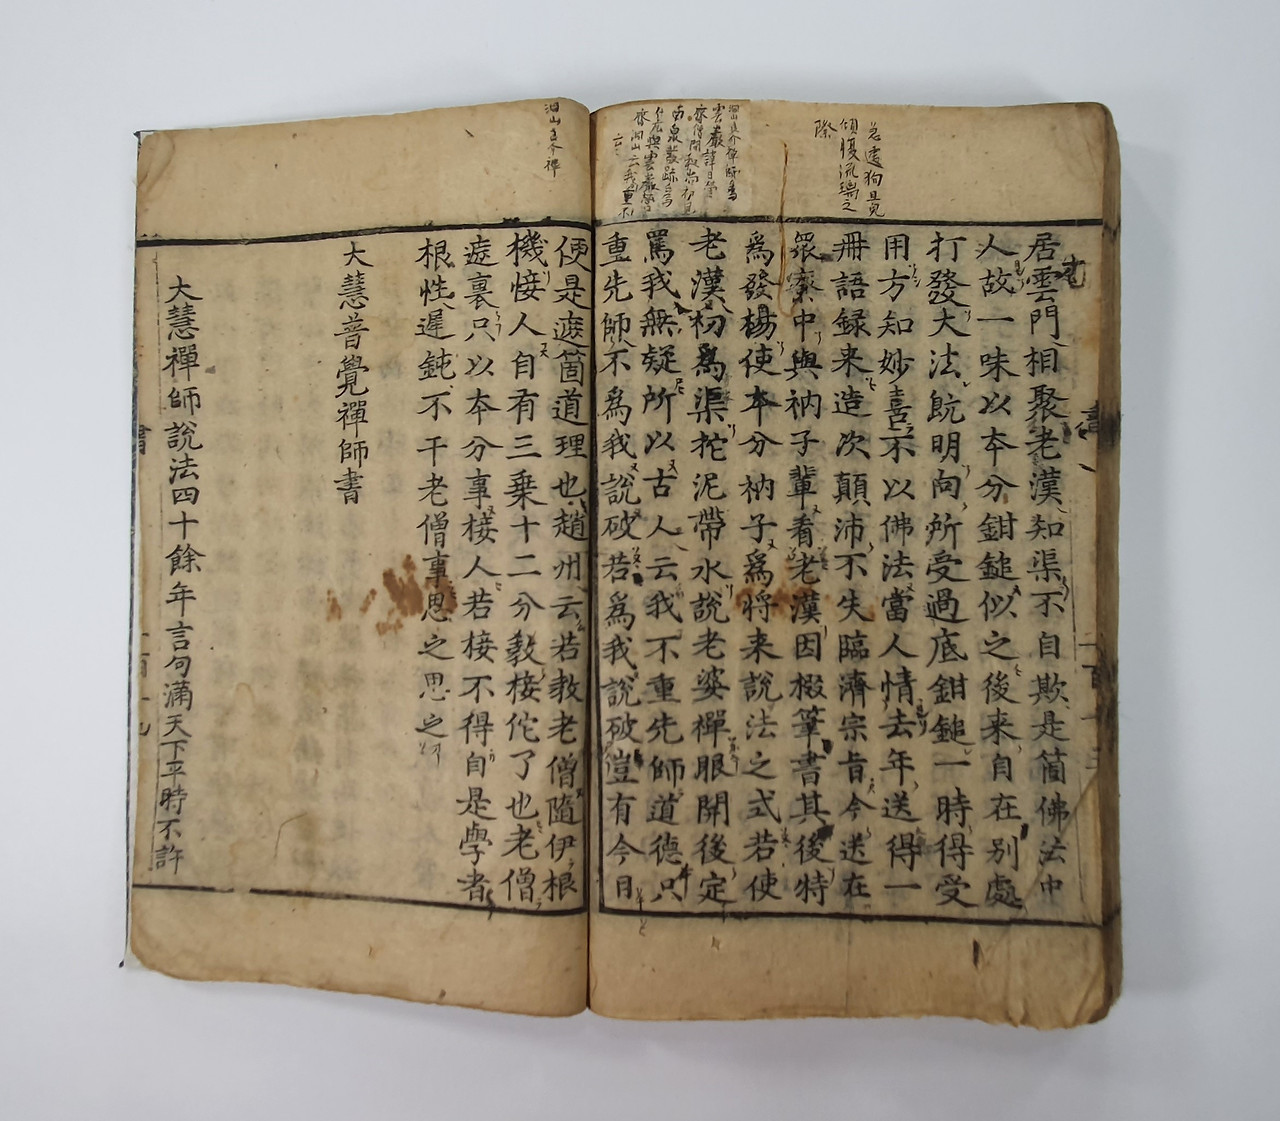 急處狗且覓
傾膓流瑀之
際
居雲門相聚老漢知渠不自欺是箇佛法中
人故一味以本分鉗鎚似之後来自在別處
打發大法旣明向所受過底鉗鎚一時得受
用方知妙喜不以佛法當人情去年送得一
冊語録来造次顛沛不失臨濟宗旨今送在
衆寮中與衲子輩看老漢因掇筆書其後特
爲發楊使本分衲子爲將来說法之式若使
老漢初爲渠拕泥帶水說老婆禪眼開後定
罵我無疑所以古人云我不重先師道德只
重先師不爲我說破若爲我說破豈有今日
便是遮箇道理也趙州云若敎老僧隨伊根
機接人自有三乗十二分敎接佗了也老僧
遮裏只以本分事接人若接不得自是學者
根性遲鈍不干老僧事思之思之
大慧普覺禪師書
大慧禪師說法四十餘年言句滿天下平時不許